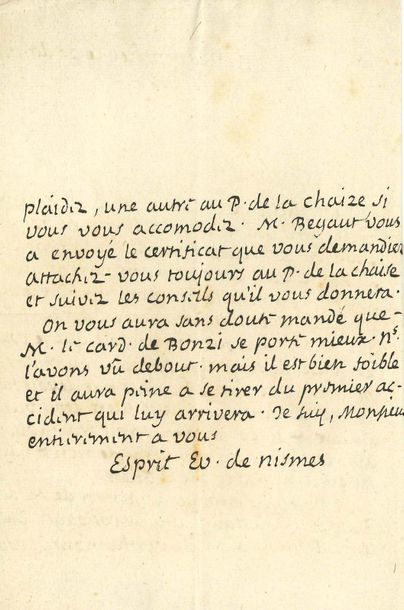 plaidez, une autre au P. de la chaize si
vous vous accomodez. M. Begaut vous
a envoyé le certificat que vous demandiez
attachez-vous toujours au P. de la chaise
et suivez les conseils qu'il vous donnera.
On vous aura sans doute mandé que
M. le card. de Bonzi se porte mieux. ns.
l'avons vû debout. mais il est bien foible
et il aura peine a se tirer du premier ac-
cident qui luy arrivera. Je suy, Monsieur
entierement a vous
Esprit Ev. de nismes